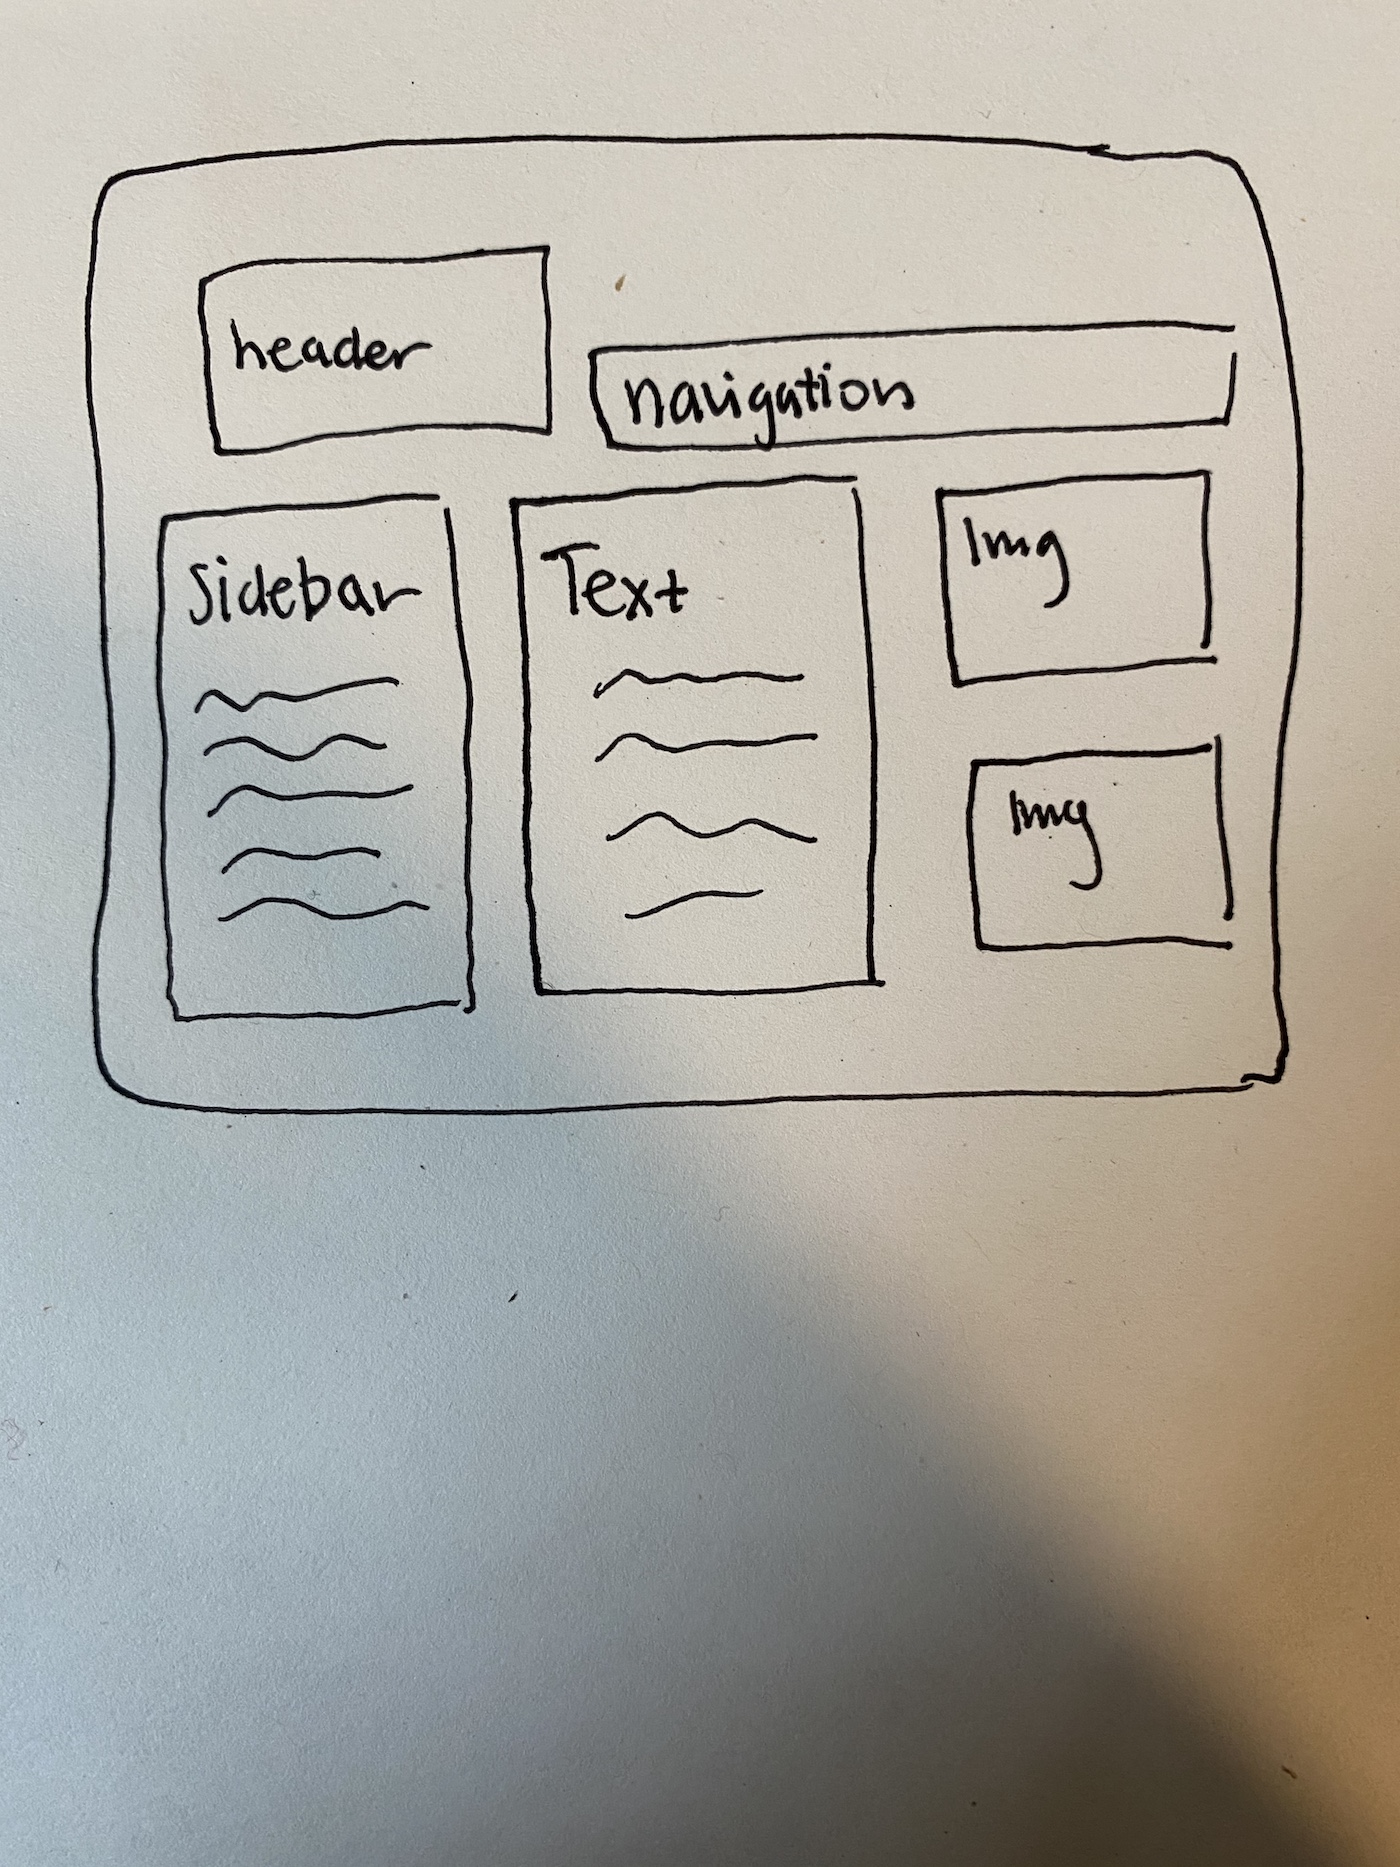 header
navigation
Sidebar
Text
Img
Img